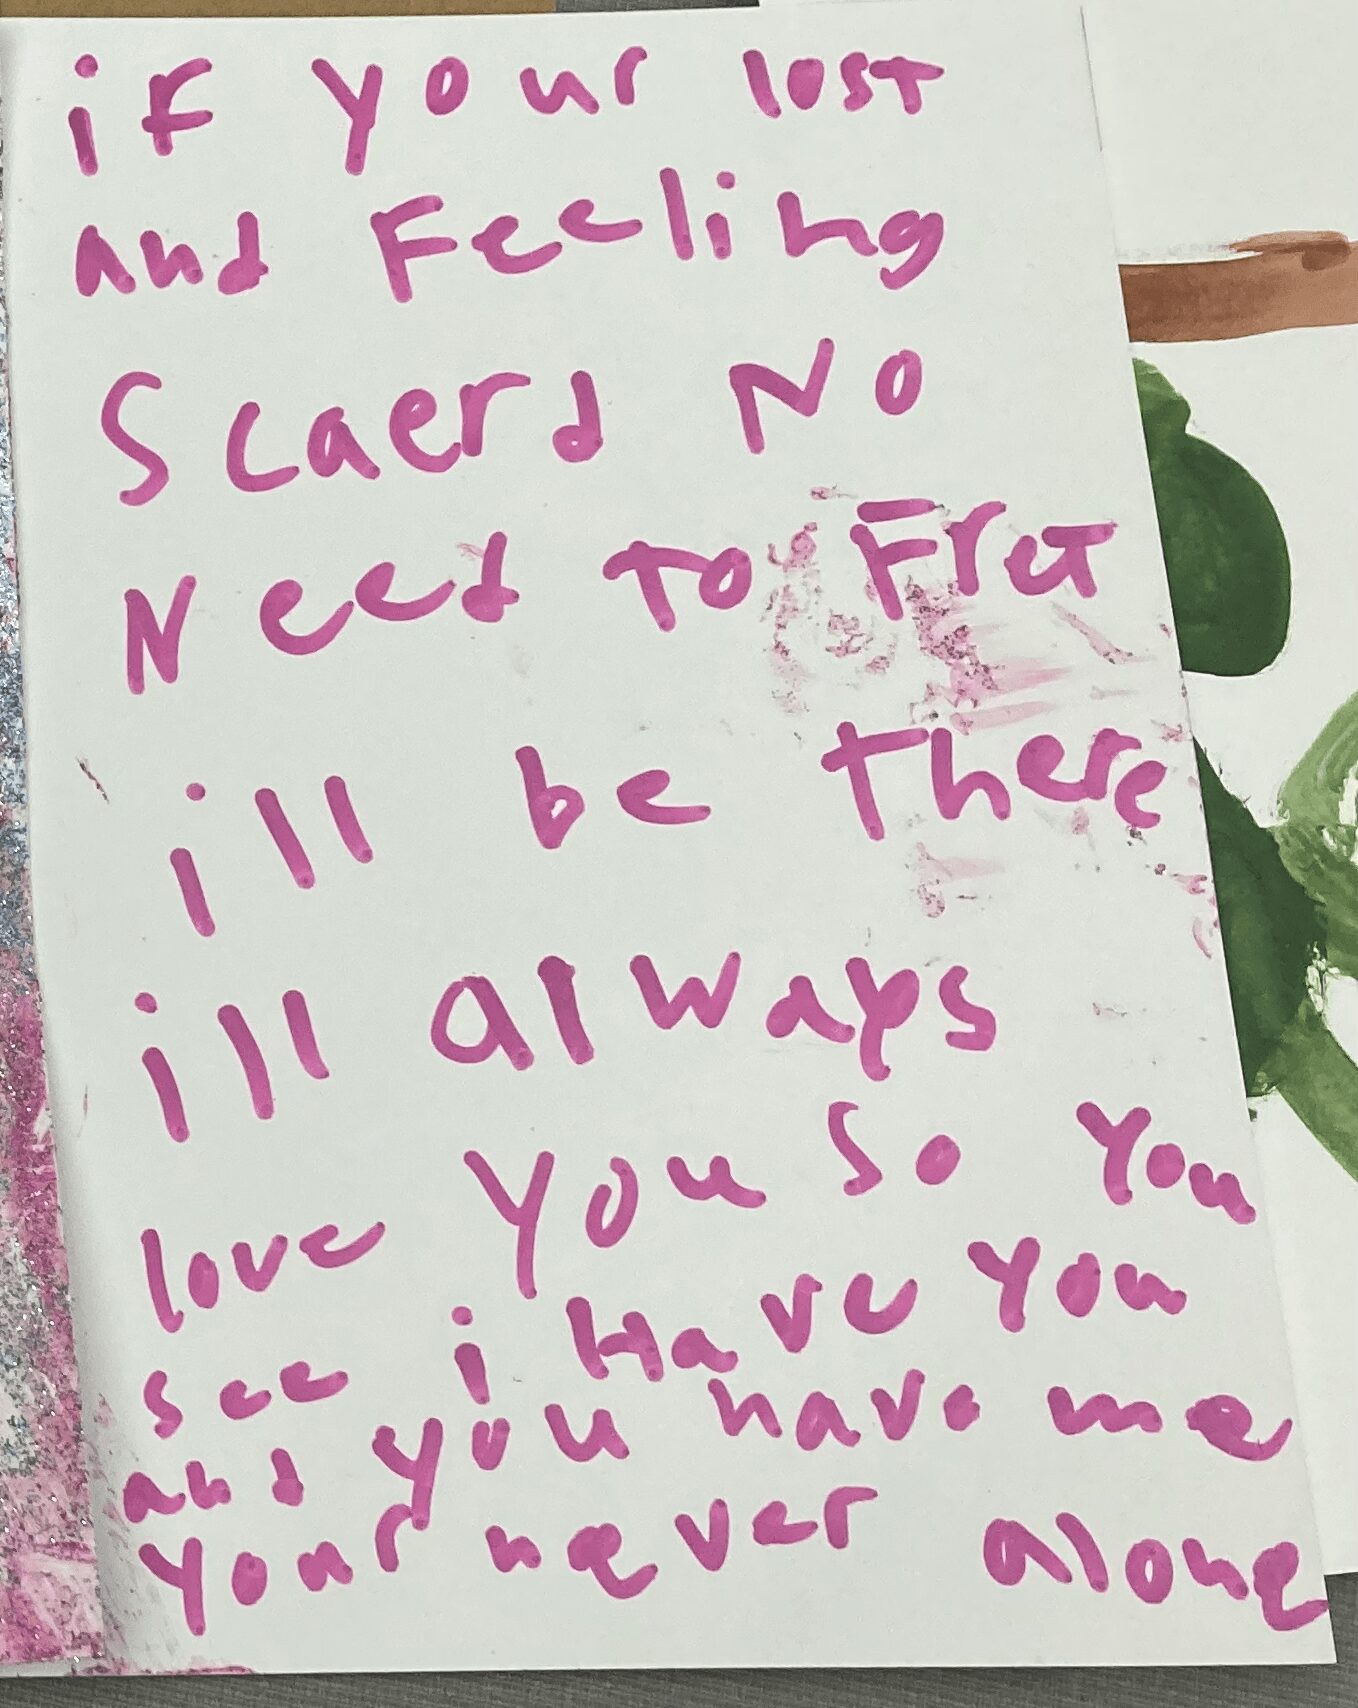 if your lost
and Feeling
Scaerd No
Need to Fret
ill be there
ill always
love you so you
see i Have you
and you have me
your never alone